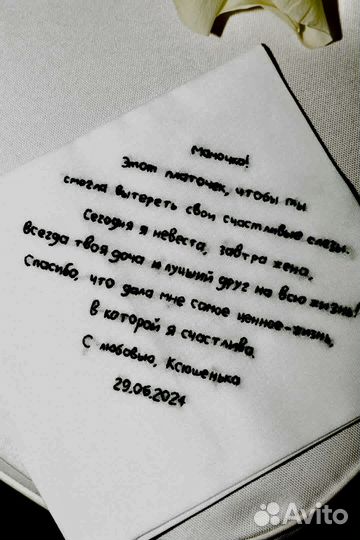 Мамочка!
Этот платочек, чтобы ты
смогла вытереть свои счастливые слезы.
Сегодня я невеста, завтра жена,
всегда твоя доча и лучший друг на всю жизнь!
Спасибо, что дала мне самое ценное-жизнь,
в которой я счастлива.
С любовью, Ксюшенька
29.06.2024
Avito